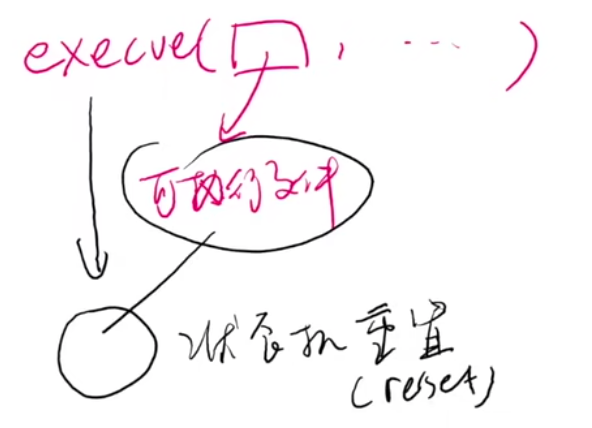 execve(□, ...)
可执行文件
状态机重置
(reset)